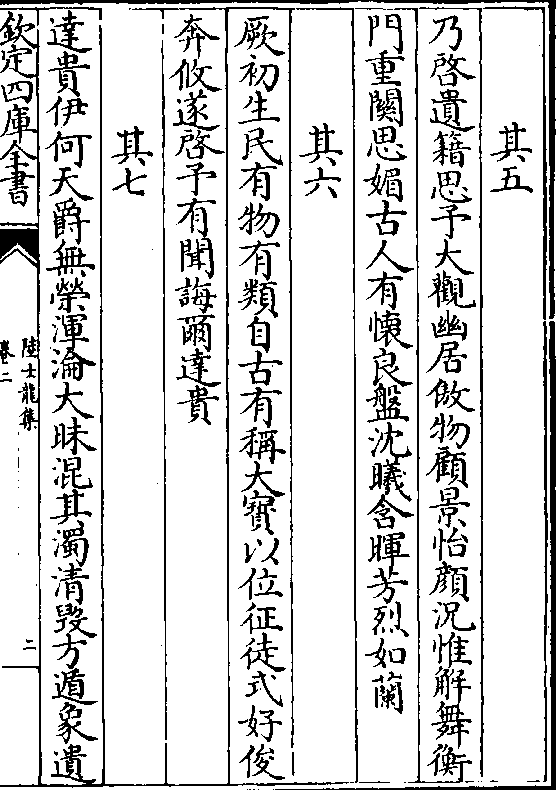 其五
乃啓遺籍思予大觀幽居倣物顧景怡顔況惟解舞衡
門重闗思媚古人有懐良盤沈曦含暉芳烈如蘭
其六
厥初生民有物有類自古有稱大寳以位征徒式好俊
奔攸遂啓予有聞誨爾達貴
其七
達貴伊何天爵無榮渾淪大昧混其濁清毁方遁象遺
欽定四庫全書
陸士龍集
卷二
二